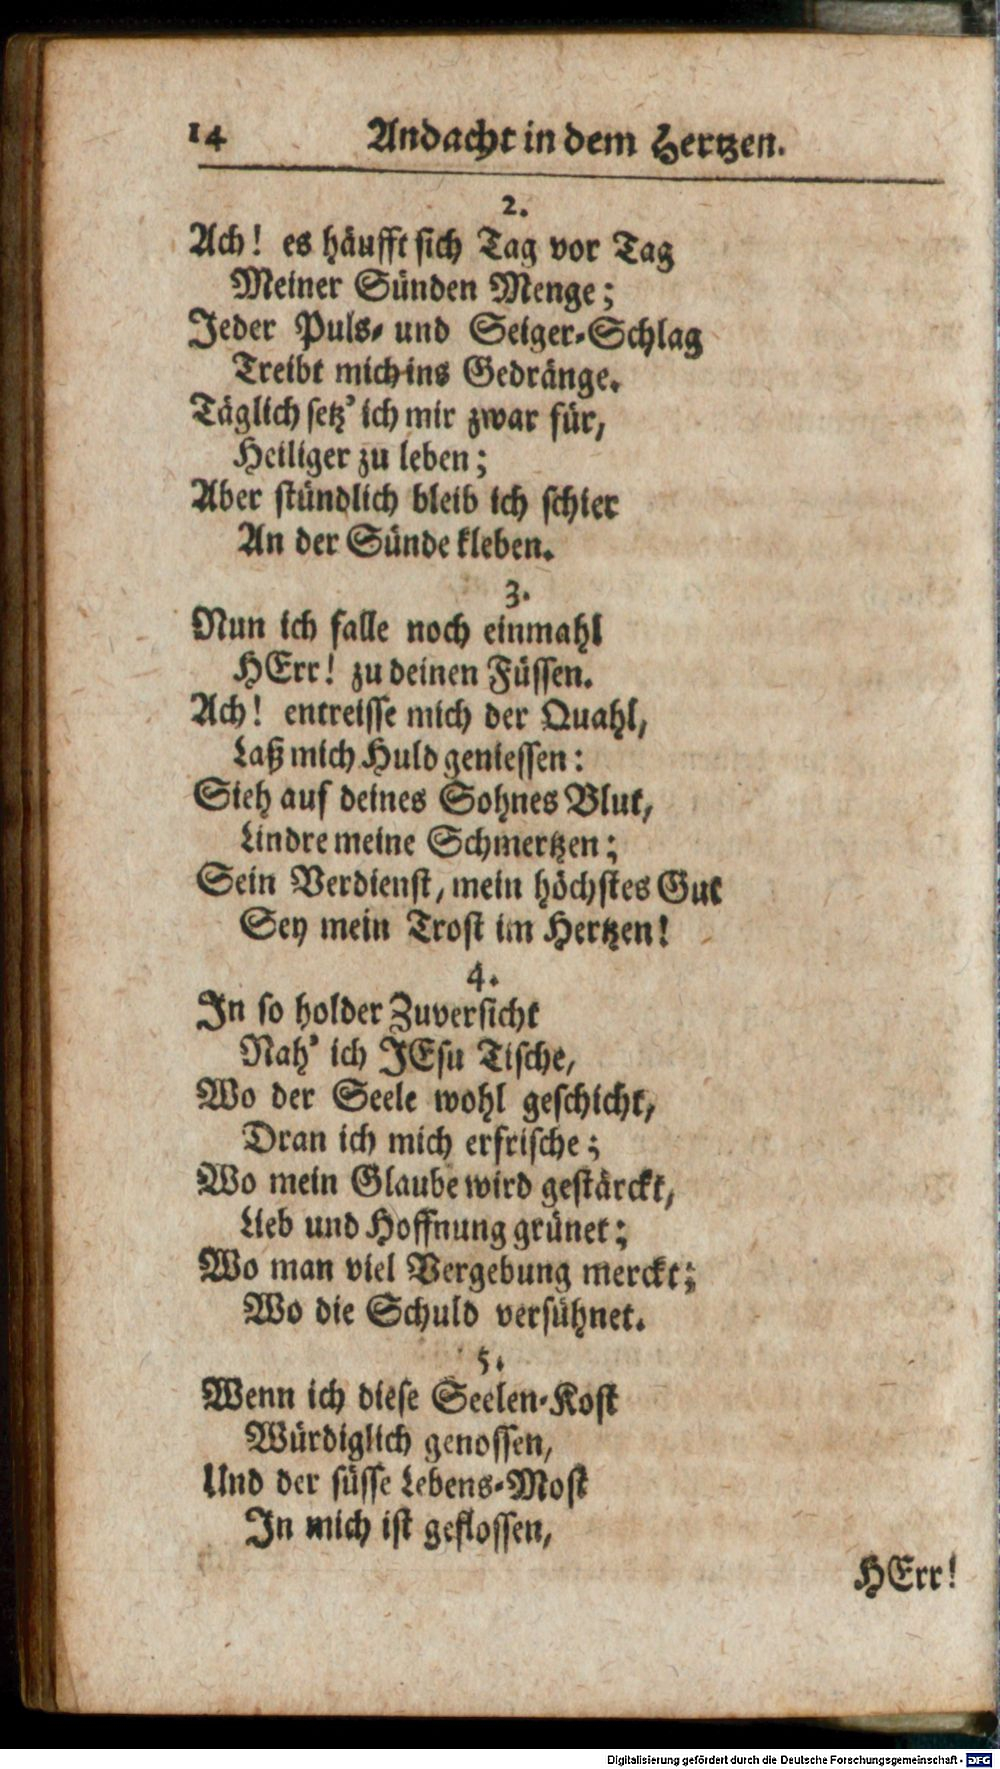 14 Andacht in dem Hertzen.
2.
Ach! es häufft sich Tag vor Tag
Meiner Sünden Menge;
Jeder Puls- und Seiger-Schlag
Treibt mich ins Gedränge.
Täglich setz' ich mir zwar für,
Heiliger zu leben;
Aber stündlich bleib ich schier
An der Sünde kleben.
3.
Nun ich falle noch einmahl
HErr! zu deinen Füssen.
Ach! entreisse mich der Quahl,
Laß mich Huld geniessen:
Sieh auf deines Sohnes Blut,
Lindre meine Schmertzen;
Sein Verdienst, mein höchstes Gut
Sey mein Trost im Hertzen!
4.
In so holder Zuversicht
Nah' ich JEsu Tische,
Wo der Seele wohl geschicht,
Dran ich mich erfrische;
Wo mein Glaube wird gestärckt,
Lieb und Hoffnung grünet;
Wo man viel Vergebung merckt;
Wo die Schuld versühnet.
5.
Wenn ich diese Seelen-Kost
Würdiglich genossen,
Und der süsse Lebens-Most
In mich ist geflossen,
HErr!
Digitalisierung gefördert durch die Deutsche Forschungsgemeinschaft - DFG